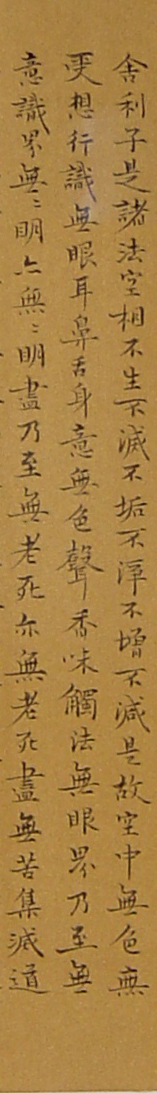 舍利子是諸法空相不生不滅不垢不淨不增不減是故空中無色無
受想行識無眼耳鼻舌身意無色聲香味觸法無眼界乃至無
意識界無〻明亦無〻明盡乃至無老死亦無老死盡無苦集滅道